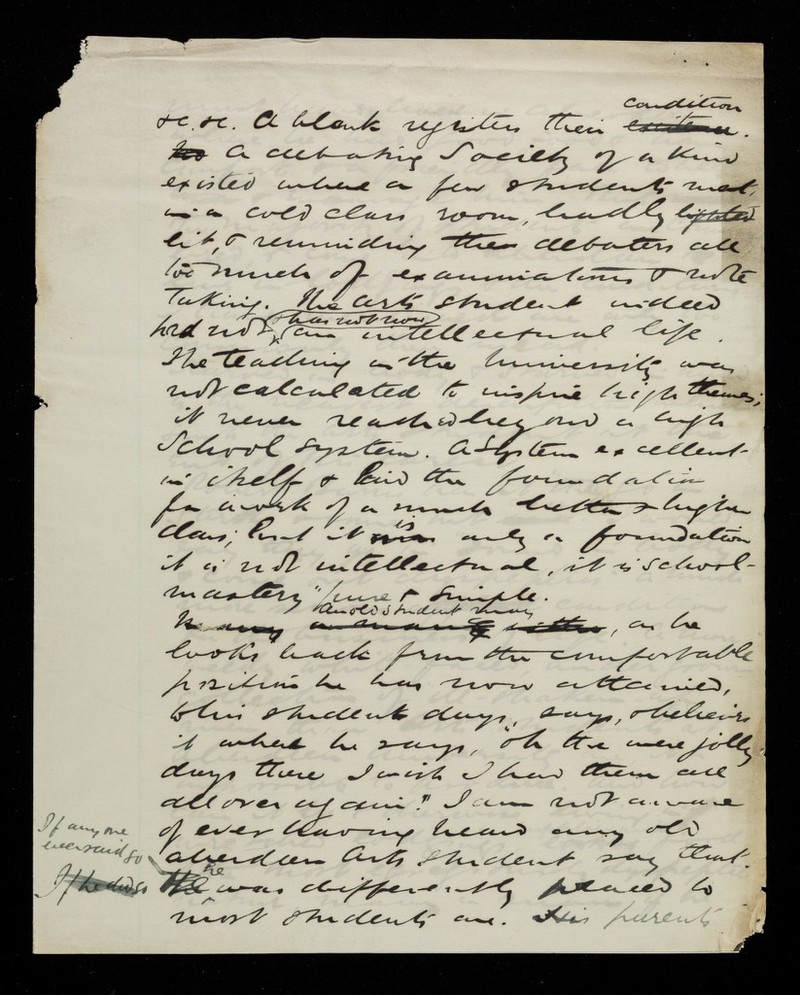 condition
&c. &c. A blank registers their existence.
A debating Society of a kind
existed where a few students met,
in a cold class room, badly lighted
lit, & reminding the debaters all
too much of examinations & note
Taking. The arts student indeed
has not now
had not an intellectual life.
The teaching in the University was
not calculated to inspire high themes;
it never reached beyond a high
School system. A System excellent
in itself & laid the foundation
for a work of a much better & higher
is
class; but it was only a foundation
it is not intellectual, it is school-
mastery "pure & simple.
an old student may
, as he
looks back from the comfortable
position he has now attained,
to his student days, says, & believes
it when he says, "oh the were jolly
days those I wish I had them all
all over again". I am not aware
If any one
of ever having heard any old
ever said so
aberdeen arts student say that.
he
If he did so He was differently placed to
most students are. His parents